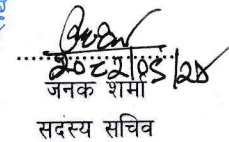 २०८२|०५|२४
जनक शर्मा
सदस्य सचिव